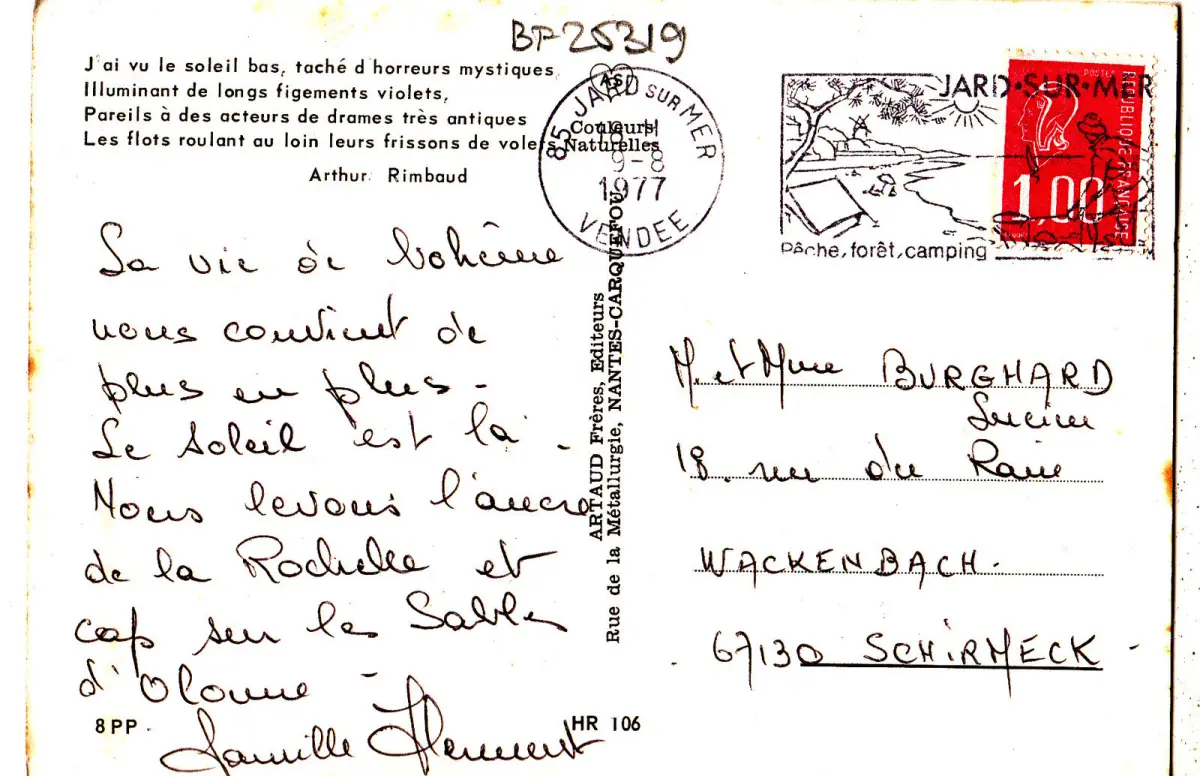 BP25319
J'ai vu le soleil bas, taché d'horreurs mystiques,
Illuminant de longs figements violets,
Pareils à des acteurs de drames très antiques
Les flots roulant au loin leurs frissons de volets
Arthur Rimbaud
Couleurs
Naturelles
85 JARD SUR MER
9-8
1977
VENDEE
JARD·SUR·MER
Pêche, forêt, camping
POSTES
REPUBLIQUE FRANÇAISE
1,00
La vie de bohème
nous convient de
plus en plus -
Le soleil est là -
Nous levons l'ancre
de la Rochelle et
cap sur les Sables
d'Olonne -
famille
ARTAUD Frères, Editeurs
Rue de la Métallurgie, NANTES-CARQUEFOU
M. et Mme BURGHARD
Lucien
18. rue du
WACKENBACH.
67130 SCHIRMECK -
8PP
HR 106